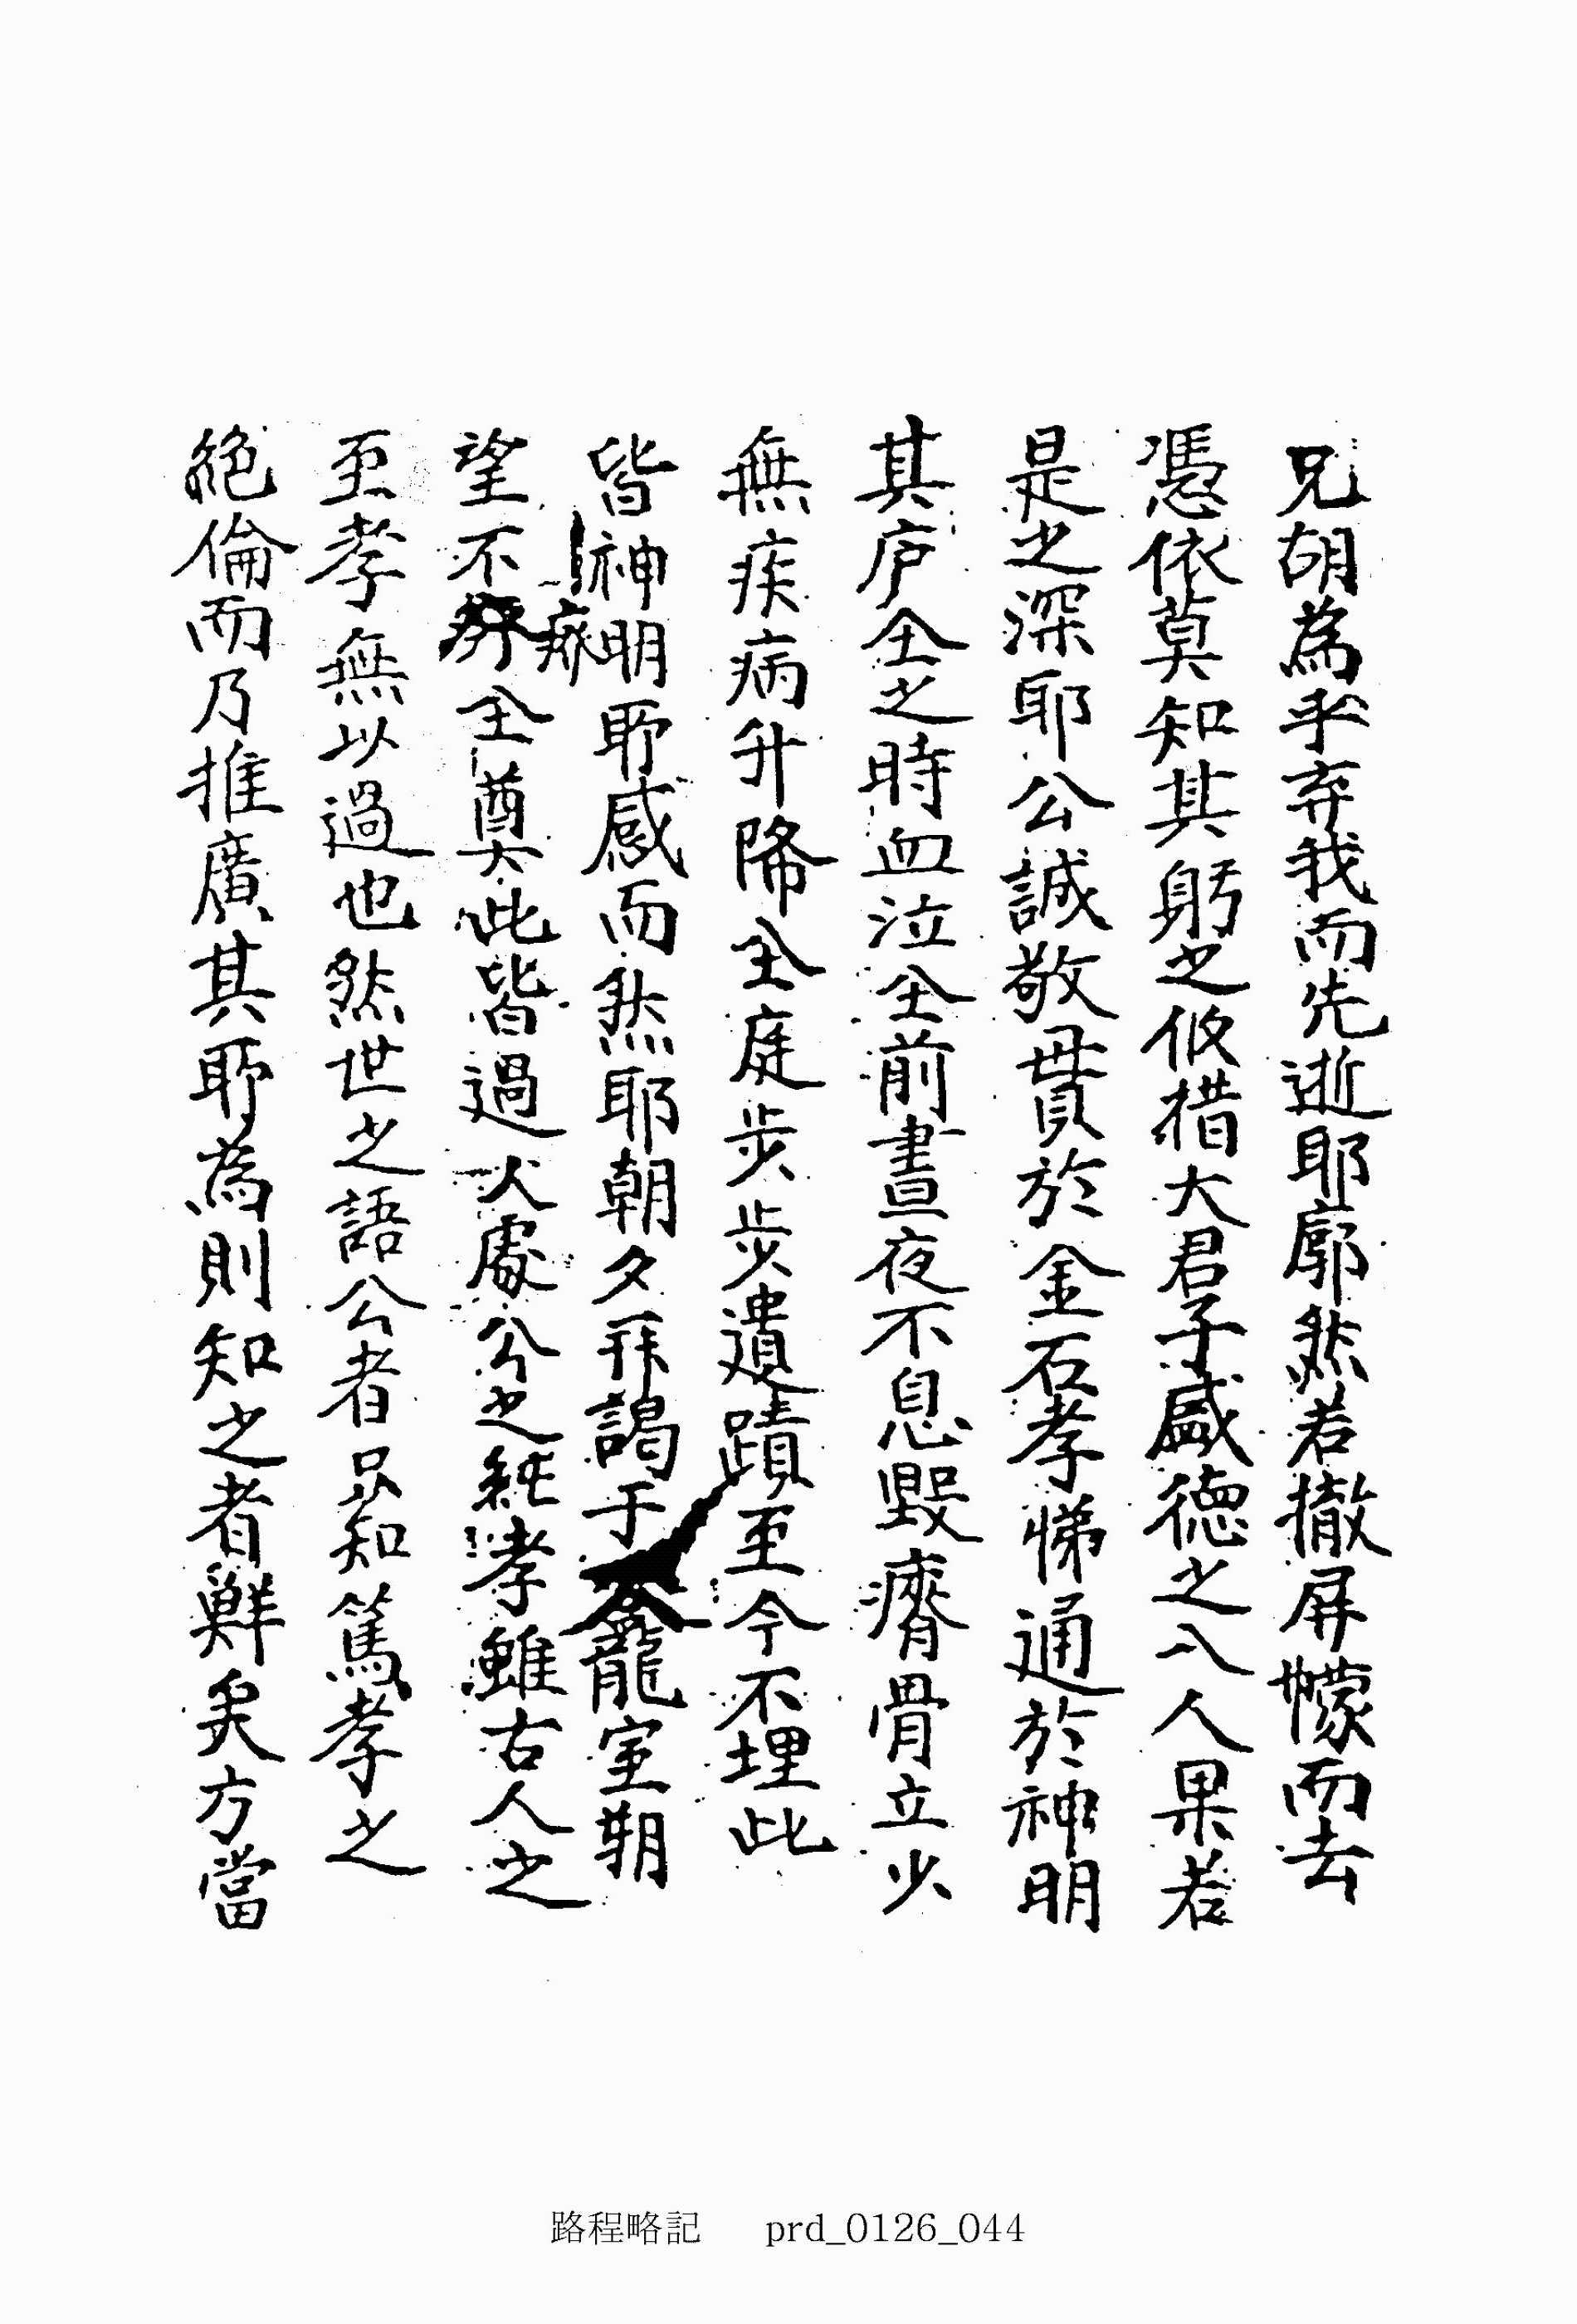 兄胡為乎弃我而先逝耶廓然若撤屏幪而去
憑依莫知其躬之攸措大君子盛德之入人果若
是之深耶公誠敬貫於金石孝悌通於神明
其庐全之時血泣全前晝夜不息毀瘠骨立少
無疾病升降全庭步步遺蹟至今不埋此
皆神明所感而然耶朝夕拜謁于龍室朔
望不廢全奠此皆過人處公之純孝雖古人之
至孝無以過也然世之語公者只知篤孝之
絶倫而乃推廣其所為則知之者鮮矣方當
路程略記 prd_0126_044